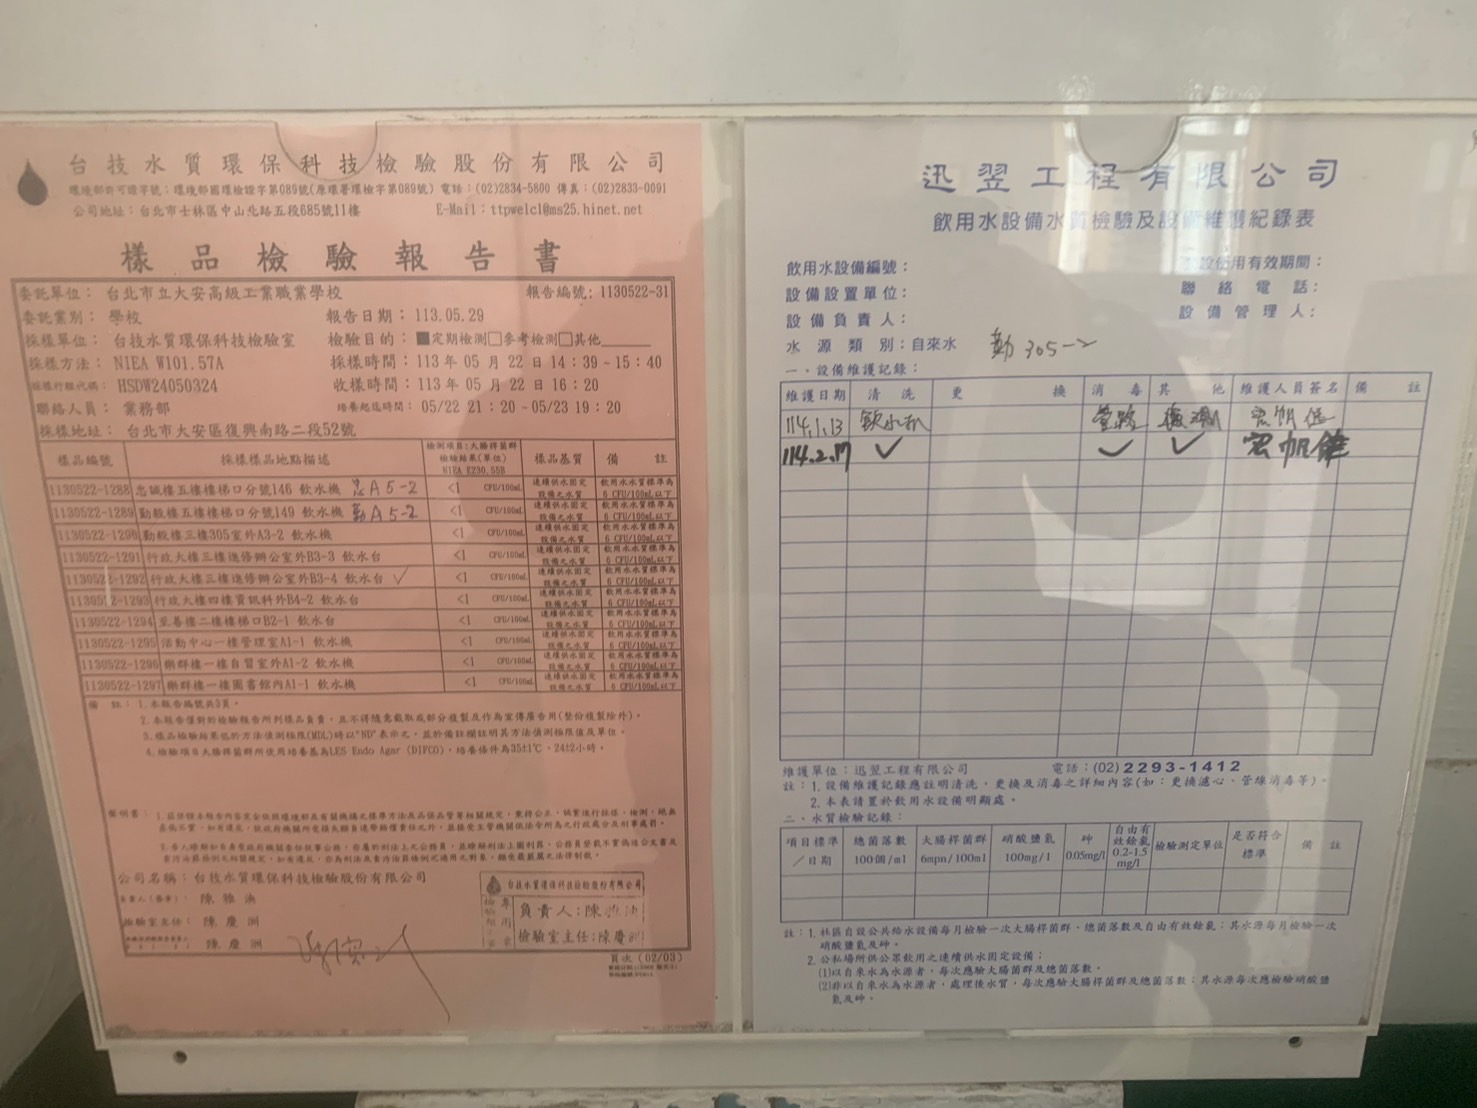 台技水質環保科技檢驗股份有限公司
環境部許可證字號：環境部國環檢證字第089號(原環署環檢字第089號) 電話：(02)2834-5800 傳真：(02)2833-0091
公司地址：台北市士林區中山北路五段685號11樓 E-Mail：ttpwelcl@ms25.hinet.net
樣品檢驗報告書
委託單位：台北市立大安高級工業職業學校 報告編號：1130522-31
委託業別：學校 報告日期：113.05.29
採樣單位：台技水質環保科技檢驗室 檢驗目的：■定期檢測□參考檢測□其他
採樣方法：NIEA W101.57A 採樣時間：113 年 05 月 22 日 14：39～15：40
採樣行程代碼：HSDW24050324 收樣時間：113 年 05 月 22 日 16：20
聯絡人員：業務部 培養起迄時間：05/22 21：20～05/23 19：20
採樣地址：台北市大安區復興南路二段52號
樣品編號 採樣樣品地點描述 檢測項目:大腸桿菌群 檢驗結果(單位) NIEA E230.55B 樣品基質 備註
1130522-1288 忠誠樓五樓樓梯口分號146 飲水機 忠A5-2 <1 CFU/100mL 連續供水固定設備之水質 飲用水水質標準為6 CFU/100mL以下
1130522-1289 勤毅樓五樓樓梯口分號149 飲水機 勤A5-2 <1 CFU/100mL 連續供水固定設備之水質 飲用水水質標準為6 CFU/100mL以下
1130522-1290 勤毅樓三樓305室外A3-2 飲水機 <1 CFU/100mL 連續供水固定設備之水質 飲用水水質標準為6 CFU/100mL以下
1130522-1291 行政大樓三樓進修辦公室外B3-3 飲水台 <1 CFU/100mL 連續供水固定設備之水質 飲用水水質標準為6 CFU/100mL以下
1130522-1292 行政大樓三樓進修辦公室外B3-4 飲水台 ✓ <1 CFU/100mL 連續供水固定設備之水質 飲用水水質標準為6 CFU/100mL以下
1130522-1293 行政大樓四樓資訊科外B4-2 飲水台 <1 CFU/100mL 連續供水固定設備之水質 飲用水水質標準為6 CFU/100mL以下
1130522-1294 至善樓二樓樓梯口B2-1 飲水台 <1 CFU/100mL 連續供水固定設備之水質 飲用水水質標準為6 CFU/100mL以下
1130522-1295 活動中心一樓管理室A1-1 飲水機 <1 CFU/100mL 連續供水固定設備之水質 飲用水水質標準為6 CFU/100mL以下
1130522-1296 樂群樓一樓自習室外A1-2 飲水機 <1 CFU/100mL 連續供水固定設備之水質 飲用水水質標準為6 CFU/100mL以下
1130522-1297 樂群樓一樓圖書館內A1-1 飲水機 <1 CFU/100mL 連續供水固定設備之水質 飲用水水質標準為6 CFU/100mL以下
備註：1.本報告編號共3頁。
2.本報告僅對於檢驗報告所列樣品負責，且不得隨意截取或部分複製及作為宣傳廣告用(整份複製除外)。
3.樣品檢驗結果低於方法偵測極限(MDL)時以"ND"表示之，並於備註欄註明其方法偵測極限值及單位。
4.檢驗項目大腸桿菌群所使用培養基為LES Endo Agar (DIFCO)，培養條件為35±1℃，24±2小時。
公司名稱：台技水質環保科技檢驗股份有限公司
檢驗室主任：陳慶洲
陳慶洲
台技水質環保科技檢驗股份有限公司
負責人：陳雅
檢驗室主任：陳慶洲
頁次 (02/03)
迅翌工程有限公司
飲用水設備水質檢驗及設備維護紀錄表
飲用水設備編號： 設使用有效期間：
設備設置單位： 聯絡電話：
設備負責人： 設備管理人：
水源類別：自來水 勤305-2
一、設備維護記錄：
維護日期 清洗 更換 消毒 其他 維護人員簽名 備註
114.1.13 飲水機 管路 檢測
114.2.17 ✓ ✓ ✓
維護單位：迅翌工程有限公司 電話：(02)2293-1412
註：1.設備維護記錄應註明清洗，更換及消毒之詳細內容(如：更換濾心、管線消毒等)。
2.本表請置於飲用水設備明顯處。
二、水質檢驗記錄：
項目標準／日期 總菌落數 100個/ml 大腸桿菌群 6mpn/100ml 硝酸鹽氮 100mg/l 砷 0.05mg/l 自由有效餘氯 0.2-1.5 mg/l 檢驗測定單位 是否符合標準 備註
註：1.林區自設公共給水設備每月檢驗一次大腸桿菌群、總菌落數及自由有效餘氯；其水源每月檢驗一次
硝酸鹽氮及砷。
2.公私場所供公眾飲用之連續供水固定設備；
(1)以自來水為水源者，每次應驗大腸菌群及總菌落數。
(2)非以自來水為水源者，處理後水質，每次應驗大腸桿菌群及總菌落數；其水源每次應檢驗硝酸鹽
氮及砷。